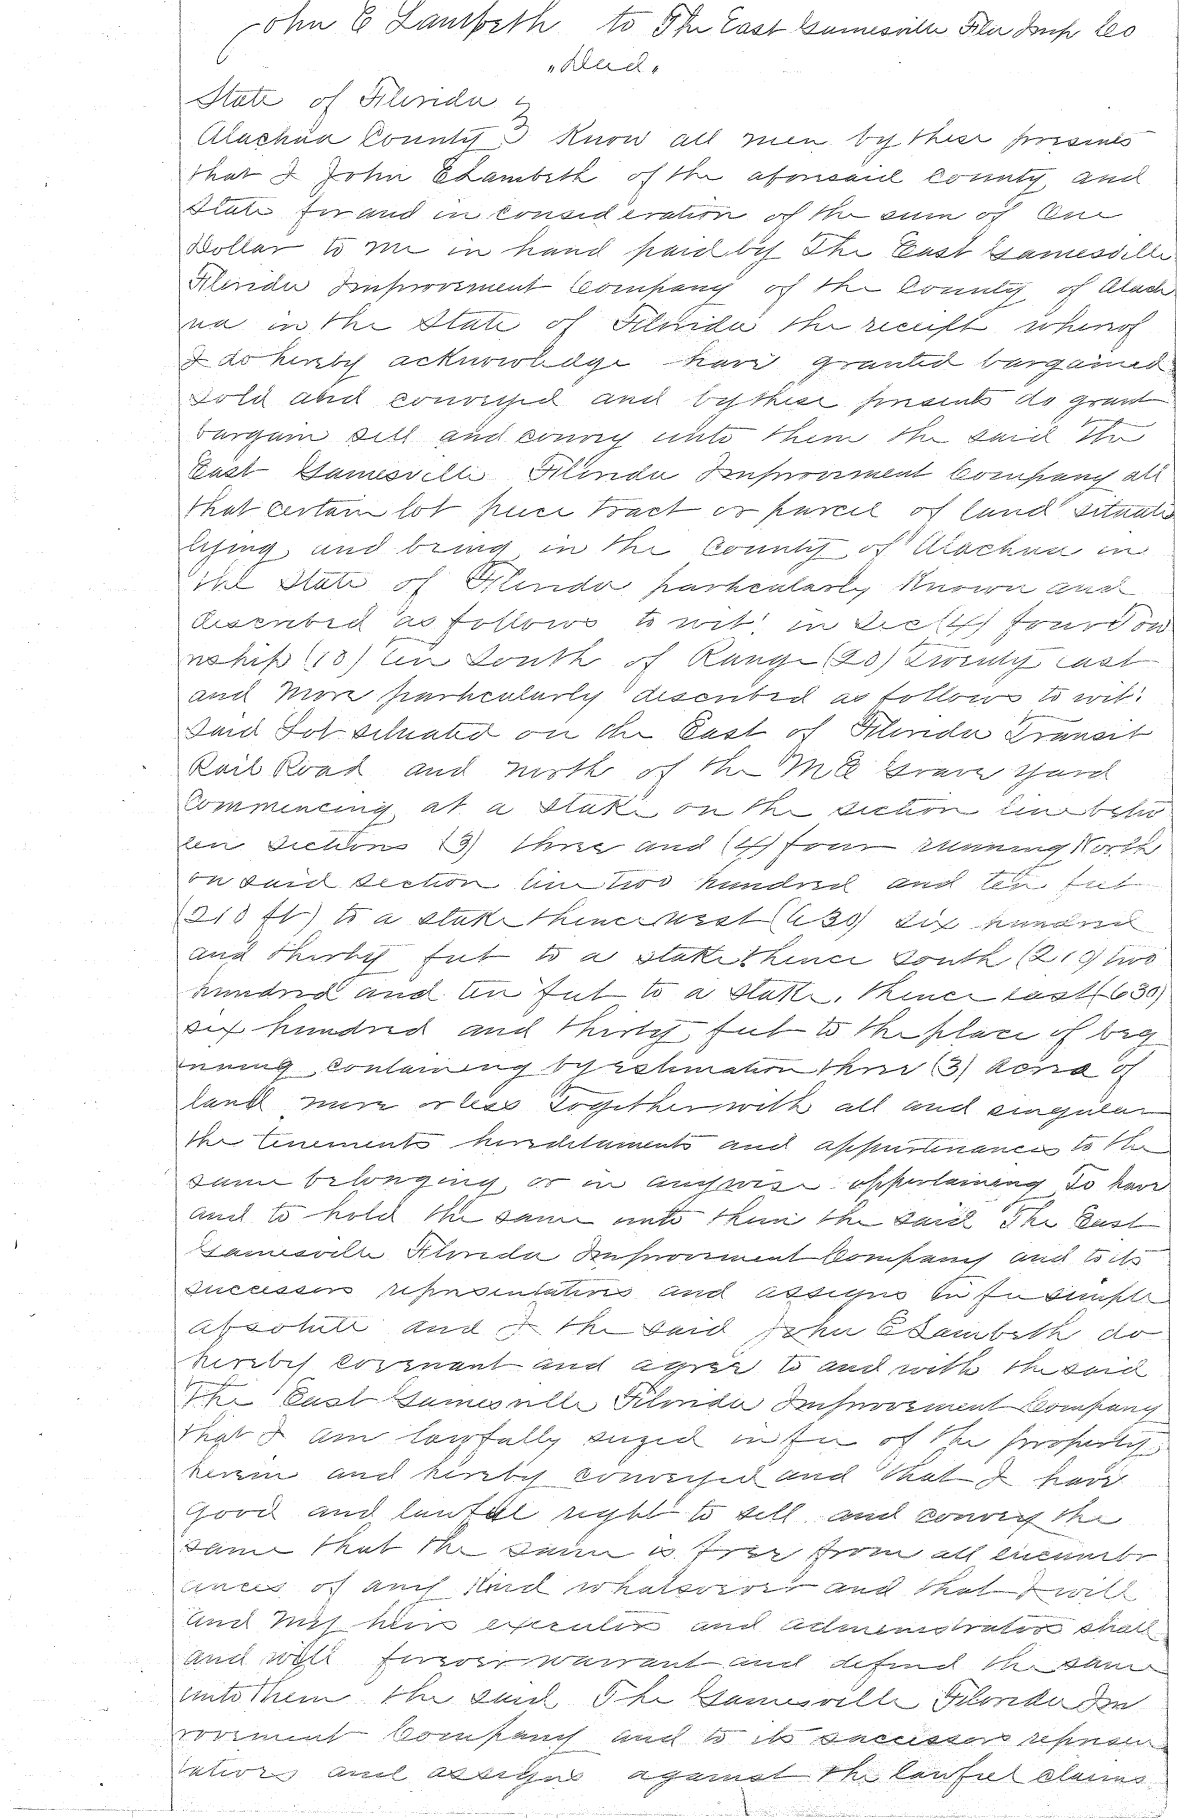 John E Lambeth to The East Gainesville Fla Imp Co
"Deed"
State of Florida
Alachua County Know all men by these presents
that I John E Lambeth of the aforesaid county and
State for and in consideration of the sum of One
Dollar to me in hand paid by The East Gainesville
Florida Improvement Company of the County of Alach
ua in the State of Florida the receipt whereof
I do hereby acknowledge have granted bargained
sold and conveyed and by these presents do grant
bargain sell and convey unto them the said The
East Gainesville Florida Improvement Company all
that certain lot piece tract or parcel of land situate
lying and being in the County of Alachua in
the State of Florida particularly Known and
described as follows to wit: in Sec (4) four Tow
nship (10) ten South of Range (20) Twenty east
and More particularly described as follows to wit:
Said Lot situated on the East of Florida Transit
Rail Road and north of the M E Grave Yard
Commencing at a Stake on the section line betw
een Sections (3) three and (4) four running North
on said section line two hundred and ten feet
(210 ft) to a stake thence west (630) six hundred
and thirty feet to a stake thence South (210) two
hundred and ten feet to a stake, thence east (630)
six hundred and thirty feet to the place of beg
nning containing by estimation three (3) acres of
land more or less Together with all and singular
the tenements hereditaments and appurtenances to the
same belonging or in anywise appertaining To have
and to hold the same unto them the said The East
Gainesville Florida Improvement Company and to its
successors representatives and assigns in fee simple
absolute and I the said John E Lambeth do
hereby covenant and agree to and with the said
The East Gainesville Florida Improvement Company
that I am lawfully seized in fee of the property
herein and hereby conveyed and that I have
good and lawful right to sell and convey the
same that the same is free from all encumbr
ances of any Kind whatsoever and that I will
and My heirs executors and administrators shall
and will forever warrant and defend the same
unto them the said The Gainesville Florida Im
rovement Company and to its successors represen
tatives and assigns against the lawful claims